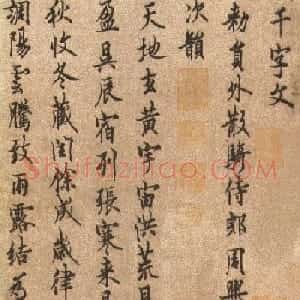 千字文
勑員外散騎侍郎周興
次韻
天地玄黃宇宙洪荒日
盈昃辰宿列張寒来
秋收冬藏閏餘成歲律
調陽雲騰致雨露結為